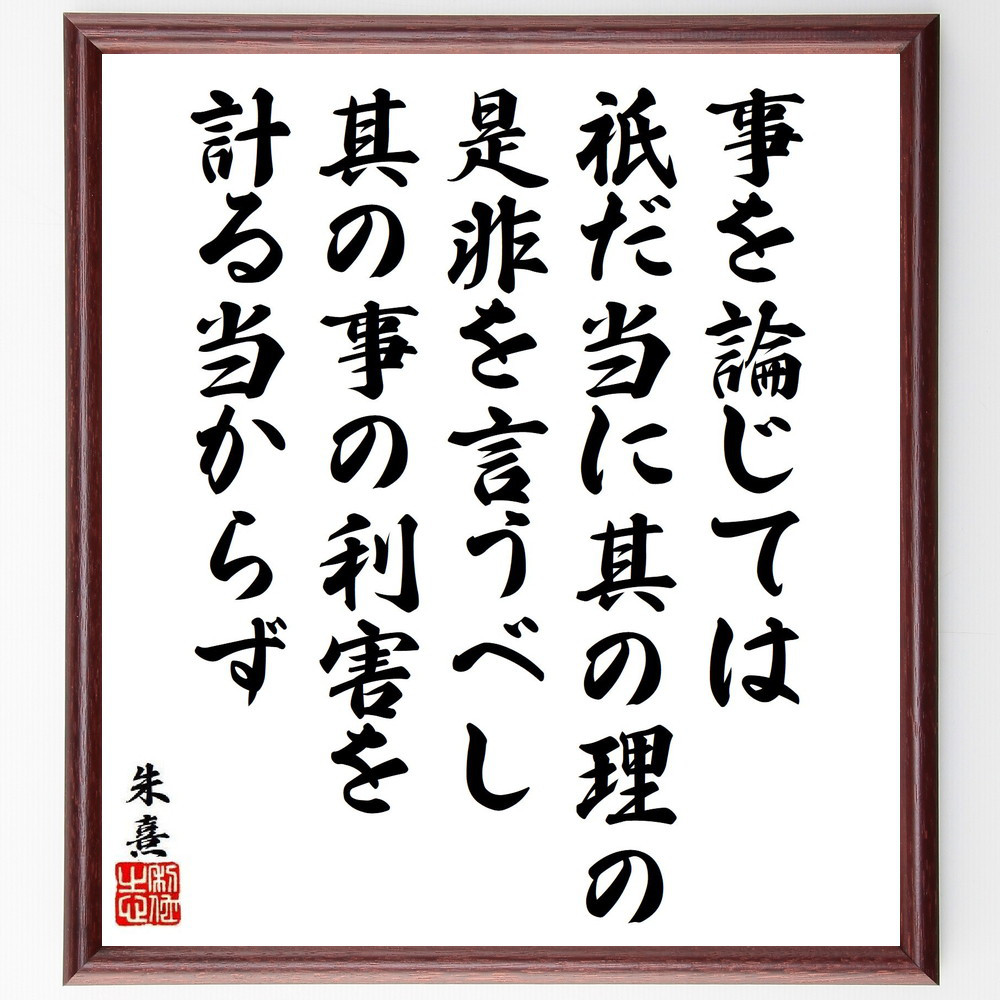 事を論じては
祇だ当に其の理の
是非を言うべし
其の事の利害を
計る当からず
朱熹